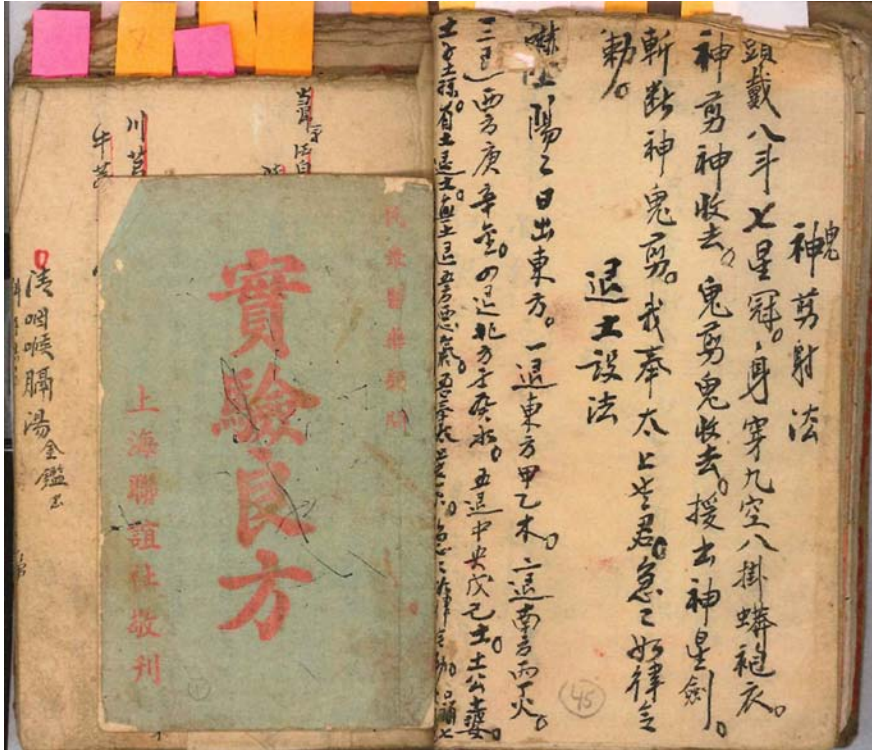 神鬼剪射法
頭戴八斗七星冠。身穿九空八掛蟒袍衣。
神剪神收去。鬼剪鬼收去。援出神星劍。
斬断神鬼剪。我奉太上老君。急〻如律令
勅。
退土設法
陽〻日出東方。一退東方甲乙木。二退南方丙丁火。
三退西方庚辛金。四退北方壬癸水。五退中央戊己土。土公土婆
土子土孫。有土退土無土退五方惡氣。吾奉
45
實驗良方
上海聯誼社敬刊
1
川芎
清咽喉膈湯 金鑑出